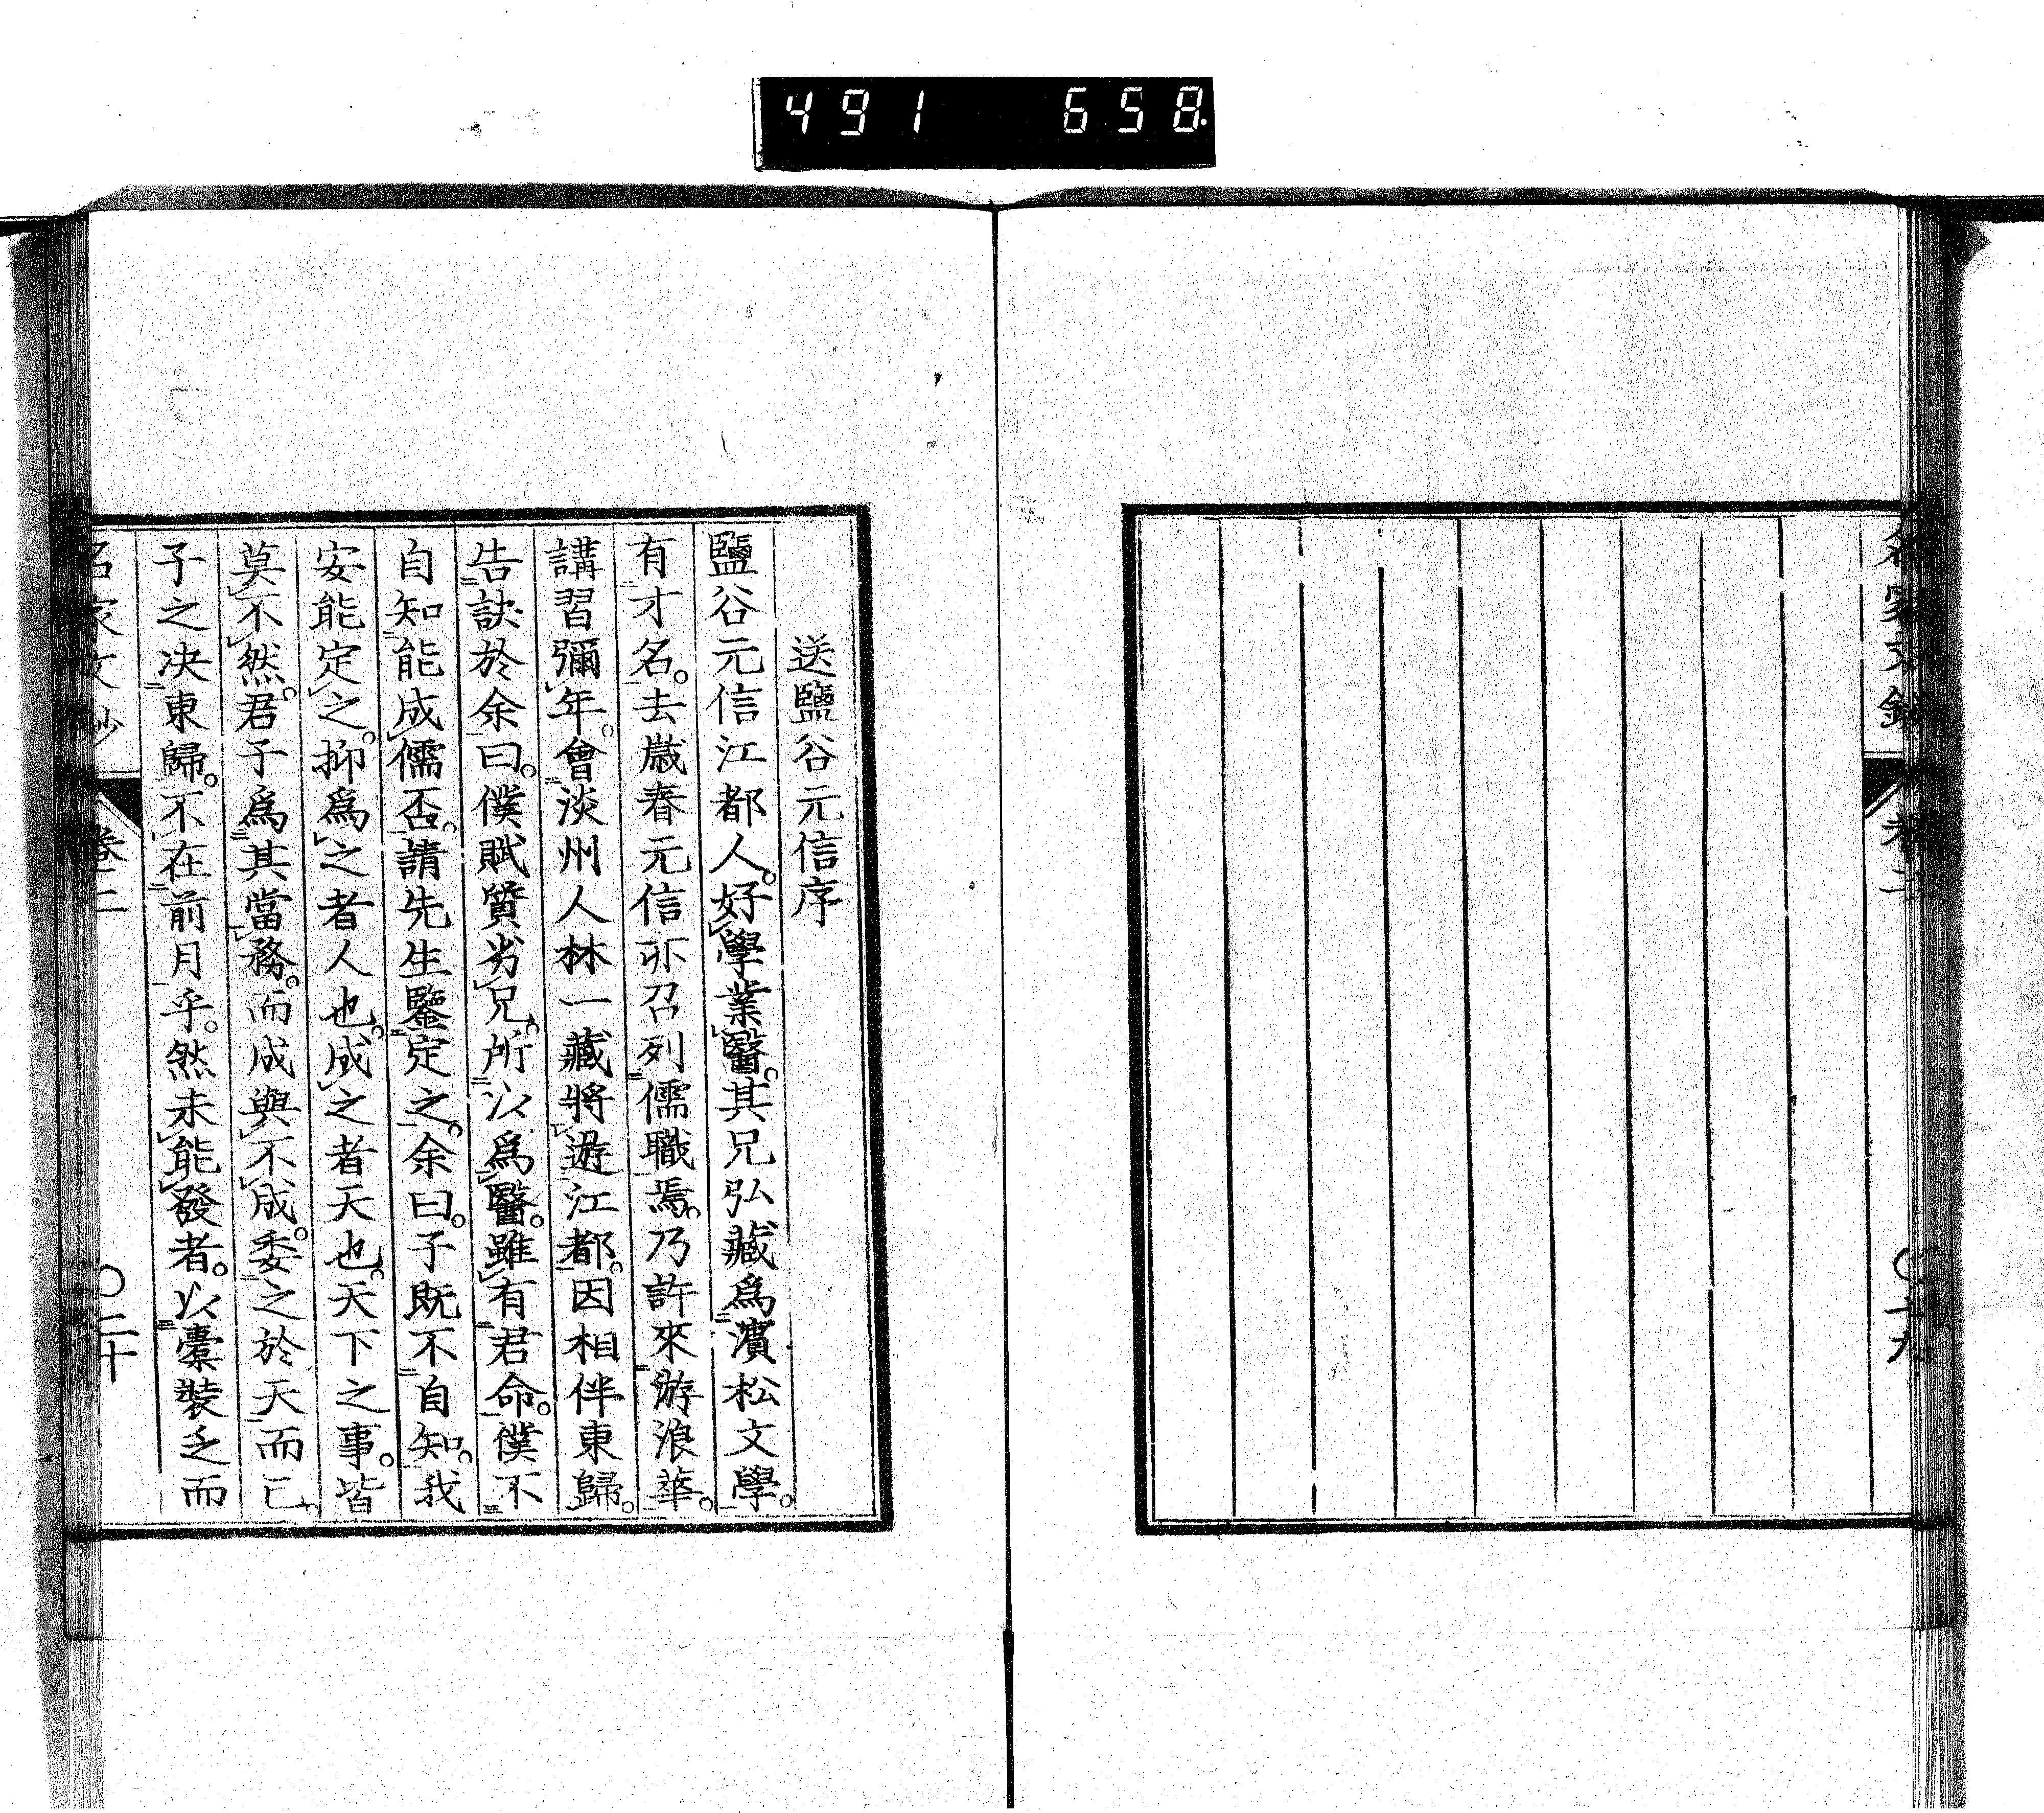 491 658.
名家文鈔
卷二
〇十九
送鹽谷元信序
鹽谷元信江都人。好學業醫。其兄弘藏爲濱松文學。
有才名。去歲春元信亦召列儒職焉。乃許來游浪華。
講習彌年。會淡州人林一藏將遊江都。因相伴東歸。
告訣於余曰。僕賦質劣兄。所以爲醫。雖有君命。僕不
自知能成儒否。請先生鑒定之。余曰。子既不自知。我
安能定之。抑爲之者人也。成之者天也。天下之事。皆
莫不然。君子爲其當務。而成與不成。委之於天而已。
子之决東歸。不在前月乎。然未能發者。以橐裝乏而
名家文鈔
卷二
〇二十